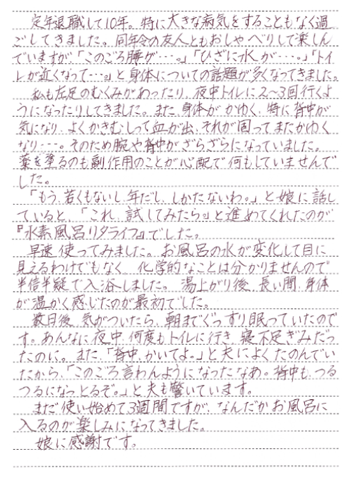 定年退職して10年。特に大きな病気をすることもなく過
ごしてきました。同年令の友人ともおしゃべりして楽しん
でいますが、「このごろ腰が…。」「ひざに水が…。」「トイ
レが近くなって…。」と身体についての話題が多くなってきました。
私も左足のむくみがあったり、夜中トイレに2〜3回行くよ
うになったりしてきました。また、身体がかゆく、特に背中が
気になり、よくかきむしって血が出、それが固ってまたかゆく
なり…。そのため腕や背中がざらざらになっていました。
薬を塗るのも副作用のことが心配で何もしていませんで
した。
「もう、若くもないし、年だし、しかたないわ。」と娘に話し
ていると、「これ、試してみたら。」と進めてくれたのが
『水素風呂リタライフ』でした。
早速使ってみました。お風呂の水が変化して目に
見えるわけでもなく、化学的なことは分かりませんので
半信半疑で入浴しました。湯上がり後、長い間、身体
が温かく感じたのが最初でした。
数日後、気がついたら、朝までぐっすり眠っていたので
す。あんなに夜中、何度もトイレに行き、寝不足ぎみだっ
たのに。また、「背中、かいてよ。」と夫によくたのんでい
たから、「このごろ言わんようになったなあ。背中も、つる
つるになっとるぞ。」と夫も驚いています。
まだ使い始めて3週間ですが、なんだかお風呂に
入るのが楽しみになってきました。
娘に感謝です。